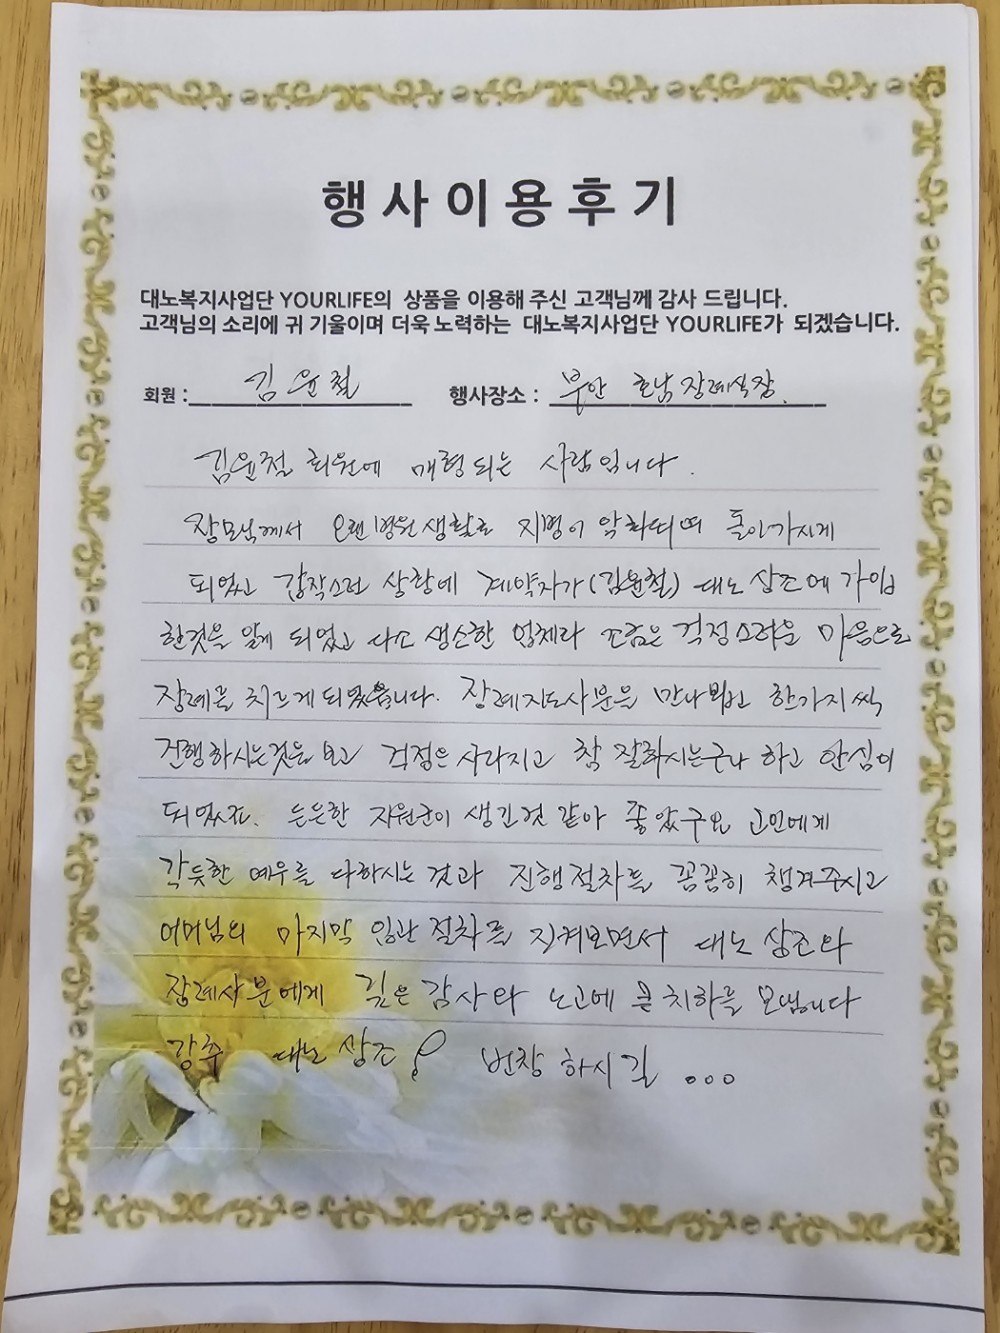 행사이용후기
대노복지사업단 YOURLIFE의 상품을 이용해 주신 고객님께 감사 드립니다.
고객님의 소리에 귀 기울이며 더욱 노력하는 대노복지사업단 YOURLIFE가 되겠습니다.
회원 : 김윤철 행사장소 : 부안 호남장례식장.
김윤철 회원에 매형되는 사람입니다.
장모님께서 오랜병원생활로 지병이 악화되며 돌아가시게
되었고 갑작스런 상황에 계약자가(김윤철) 대노상조에 가입
한것을 알게 되었고 다소 생소한 업체라 조금은 걱정스러운 마음으로
장례를 치르게되었습니다. 장례지도사분을 만나뵙고 한가지씩
진행하시는것을 보고 걱정은 사라지고 참 잘하시는구나 하고 안심이
되었죠. 든든한 지원군이 생긴것 같아 좋았구요 고인에게
각듯한 예우를 다하시는 것과 진행절차를 꼼꼼히 챙겨주시고
어머님의 마지막 입관 절차를 지켜보면서 대노 상조와
장례사분에게 깊은 감사와 노고에 큰치하를 보냅니다
강추 대노 상조! 번창 하시길 ...